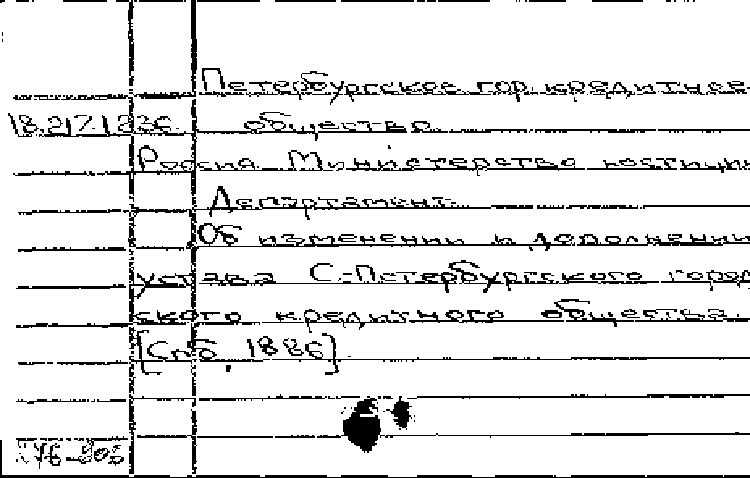 Петербургское гор. кредитное
18.217.1.236 общество.
Россия. Министерство юстиции
Департамент.
Об изменении и дополнении
устава С.-Петербургского город
ского кредитного общества.
[Спб, 1886]